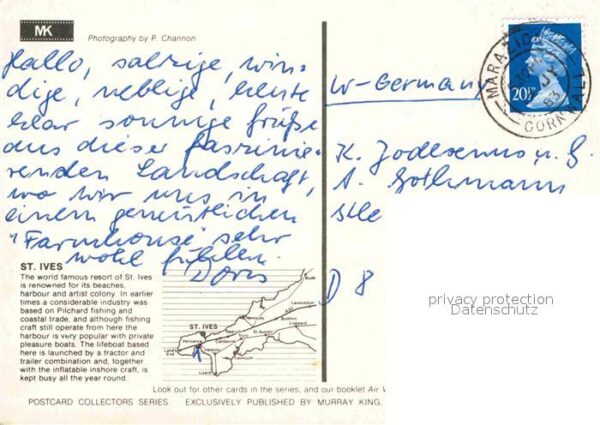 MK
Photography by P. Channon
Hallo, salzige, win-
dige, neblige, heute
klar sonnige Grüße
aus dieser faszinie-
renden Landschaft,
wo wir uns in
einem gemütlichen
"Farmhouse" sehr
wohl fühlen.
Doris
W-Germany
K.
A. Gothmann
D 8
20½P
MARAZION
CORNWALL
83
privacy protection
Datenschutz
ST. IVES
The world famous resort of St. Ives
is renowned for its beaches,
harbour and artist colony. In earlier
times a considerable industry was
based on Pilchard fishing and
coastal trade, and although fishing
craft still operate from here the
harbour is very popular with private
pleasure boats. The lifeboat based
here is launched by a tractor and
trailer combination and, together
with the inflatable inshore craft, is
kept busy all the year round.
Bude
Launceston
Newquay
Bodmin
Liskeard
ST. IVES
Redruth
Truro
St. Austell
Penzance
Camborne
Falmouth
Land's
End
Lizard
Look out for other cards in the series, and our booklet Air
POSTCARD COLLECTORS SERIES. EXCLUSIVELY PUBLISHED BY MURRAY KING,